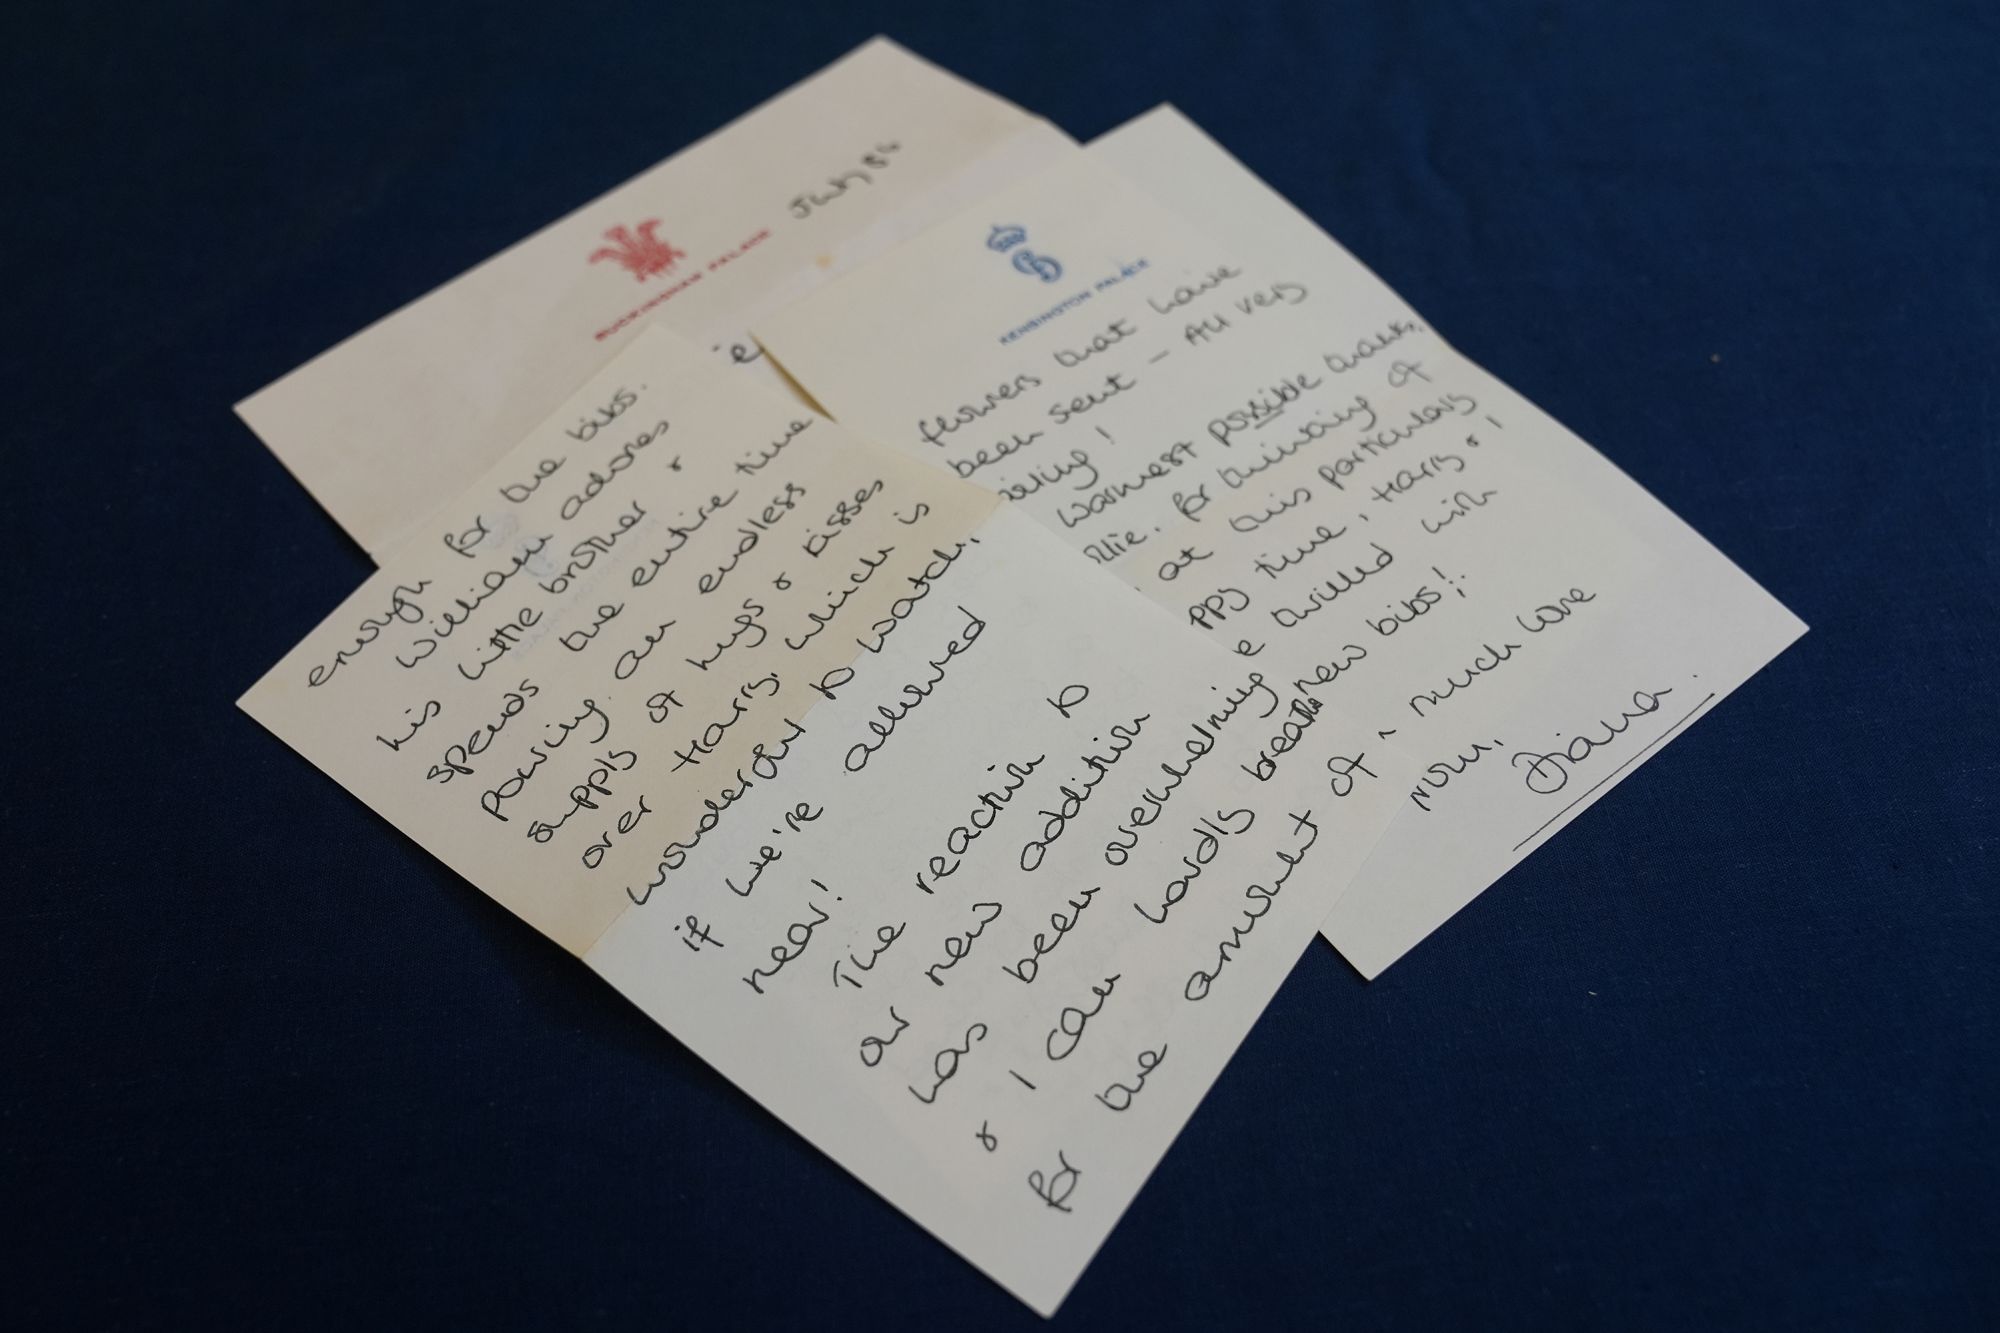 BUCKINGHAM PALACE
July 84
KENSINGTON PALACE
flowers that have
been sent - All very
warmest possible thanks,
for thinking of
at this particularly
time, Harry & I
thrilled with
new bibs!
much love
from,
Diana.
enough for the bibs.
William adores
his little brother &
spends the entire time
pouring an endless
supply of hugs & kisses
over Harry, which is
wonderful to watch,
if we're allowed
near!
The reaction to
our new addition
has been overwhelming
& I can hardly breathe
for the amount of